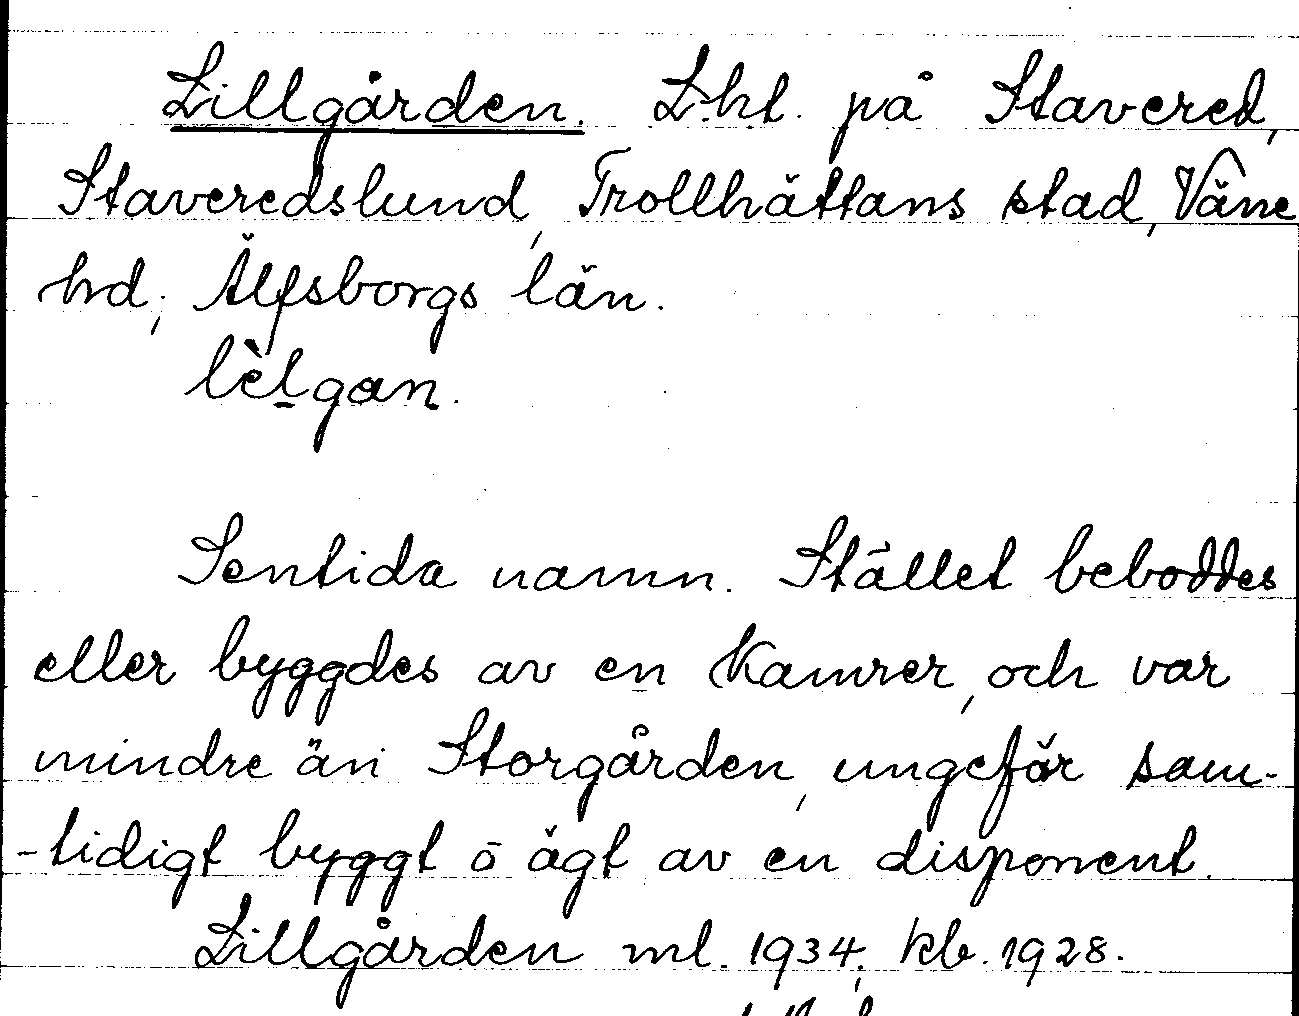 Lillgården. L.ht. på Stavered,
Staveredslund, Trollhättans stad, Väne
hd, Älfsborgs län.
lèlgan.
Sentida namn. Stället beboddes
eller byggdes av en Kamrer, och var
mindre än Storgården, ungefär sam-
-tidigt byggt o ägt av en disponent.
Lillgården ml. 1934, kb. 1928.